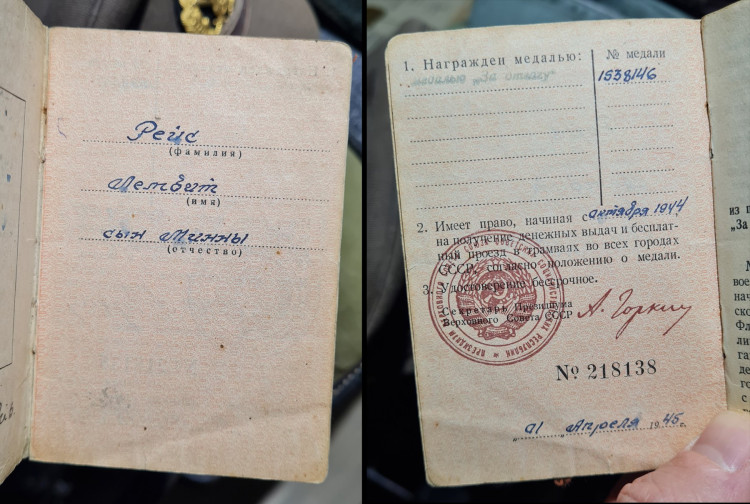 Рейс
(фамилия)
Лембит
(имя)
сын Минны
(отчество)
1. Награжден медалью:
№ медали
медалью „За отвагу“
1538146
2. Имеет право, начиная с октября 1944
на получение денежных выдач и бесплат-
ный проезд в трамваях во всех городах
СССР, согласно положению о медали.
3. Удостоверение бессрочное.
Секретарь Президиума
Верховного Совета СССР
А. Горкин
№ 218138
„01“ Апреля 1945 г.
из п
„За